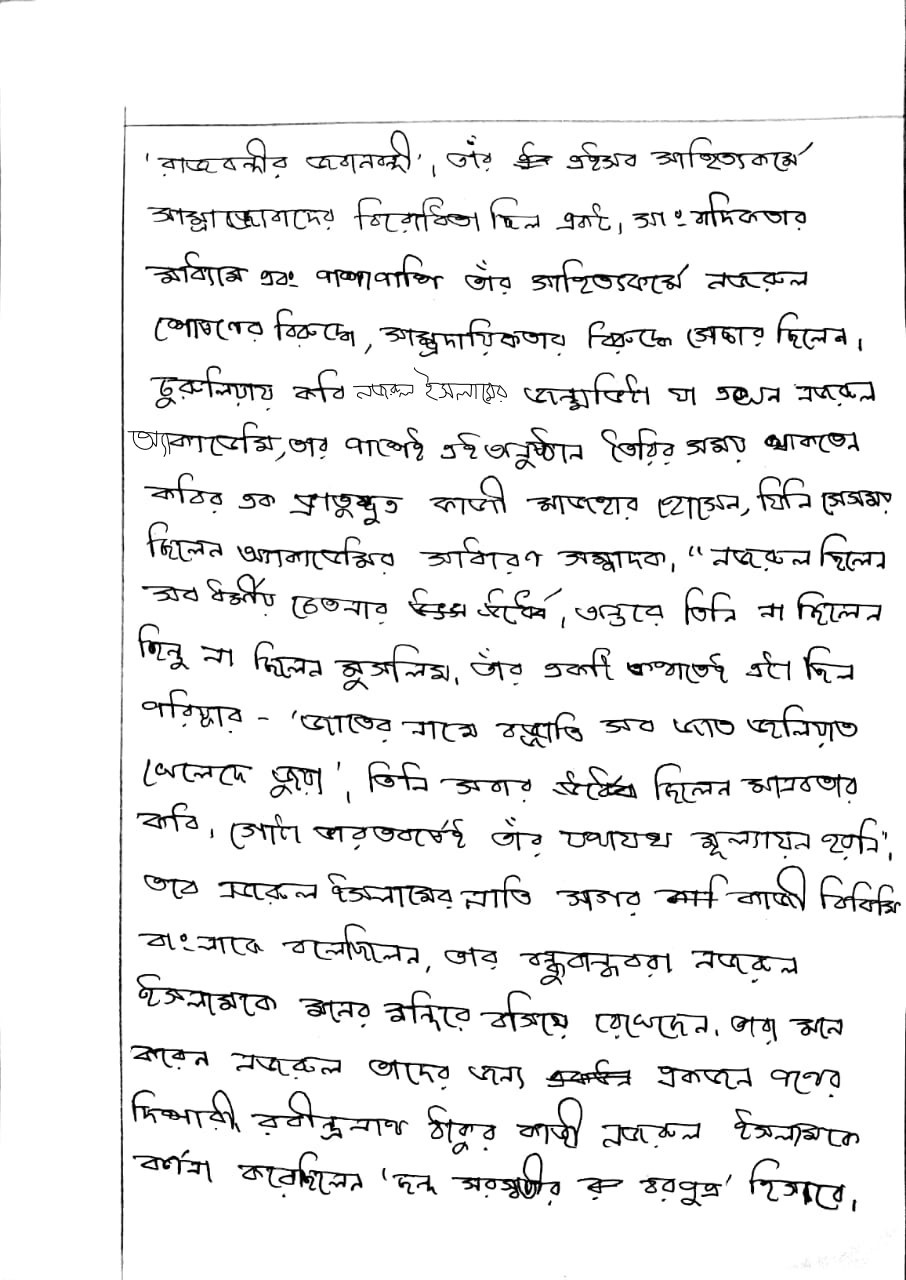 'রাজবন্দীর জবানবন্দী', তাঁর এইসব সাহিত্যকর্মে
সাম্রাজ্যবাদের বিরোধিতা ছিল স্পষ্ট, সাংবাদিকতার
মাধ্যমে এবং পাশাপাশি তাঁর সাহিত্যকর্মে নজরুল
শোষণের বিরুদ্ধে, সাম্প্রদায়িকতার বিরুদ্ধে সোচ্চার ছিলেন।
চুরুলিয়ায় কবি নজরুল ইসলামের জন্মভিটা যা এখন নজরুল
অ্যাকাডেমি, তার পাশেই এই অনুষ্ঠান তৈরির সময় থাকতেন
কবির এক ভ্রাতুষ্পুত্র কাজী মাজহার হোসেন, যিনি সেসময়
ছিলেন অ্যাকাডেমির সাধারণ সম্পাদক, "নজরুল ছিলেন
সব ধর্মীয় চেতনার ঊর্ধ্বে, অন্তরে তিনি না ছিলেন
হিন্দু না ছিলেন মুসলিম, তাঁর একটি কথাতেই এটা ছিল
পরিষ্কার - 'জাতের নামে বজ্জাতি সব জাত জালিয়াত
খেলছে জুয়া', তিনি সবার ঊর্ধ্বে ছিলেন মানবতার
কবি, গোটা ভারতবর্ষেই তাঁর যথাযথ মূল্যায়ন হয়নি",
তবে নজরুল ইসলামের নাতি সাগর কাজী বিবিসি
বাংলাকে বলেছিলেন, তার বন্ধুবান্ধবরা নজরুল
ইসলামকে মনের মন্দিরে বসিয়ে রেখেছেন, তারা মনে
করেন নজরুল তাদের জন্য একজন পথের
দিশারী রবীন্দ্রনাথ ঠাকুর কাজী নজরুল ইসলামকে
বর্ণনা করেছিলেন 'ছন্দ সরস্বতীর বরপুত্র' হিসাবে,